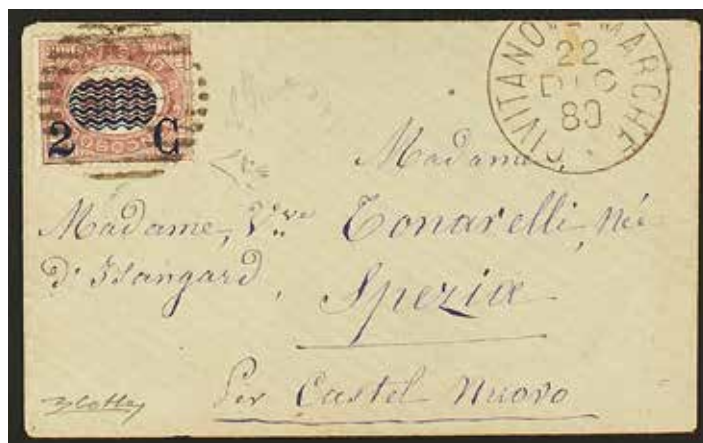 2 C
CIVITANOVA MARCHE
22
DIC
80
Madame,
Madame, Vve Tonarelli, Née
d'Isangard,
Spezia
Per Castel Nuovo